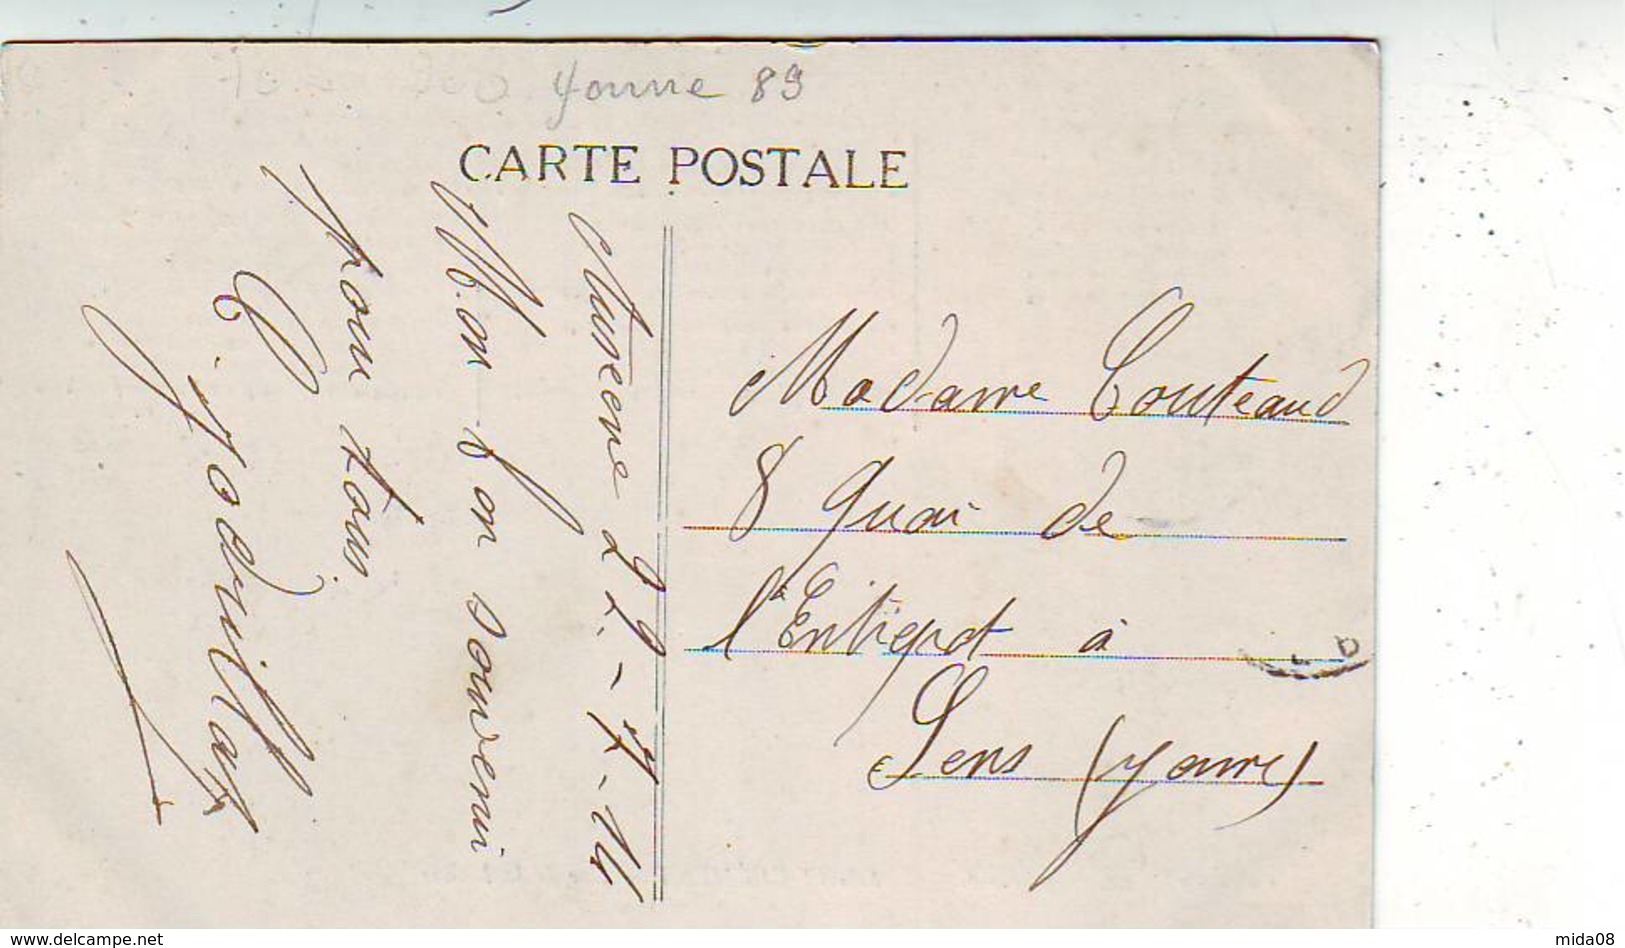 Yonne 89
CARTE POSTALE
Auxerre 22-7-14
Mon bon souvenir
pour tous
Madame Couteaud
8 Quai de
l'Entrepot à
Sens (Yonne)
www.delcampe.net
mida08